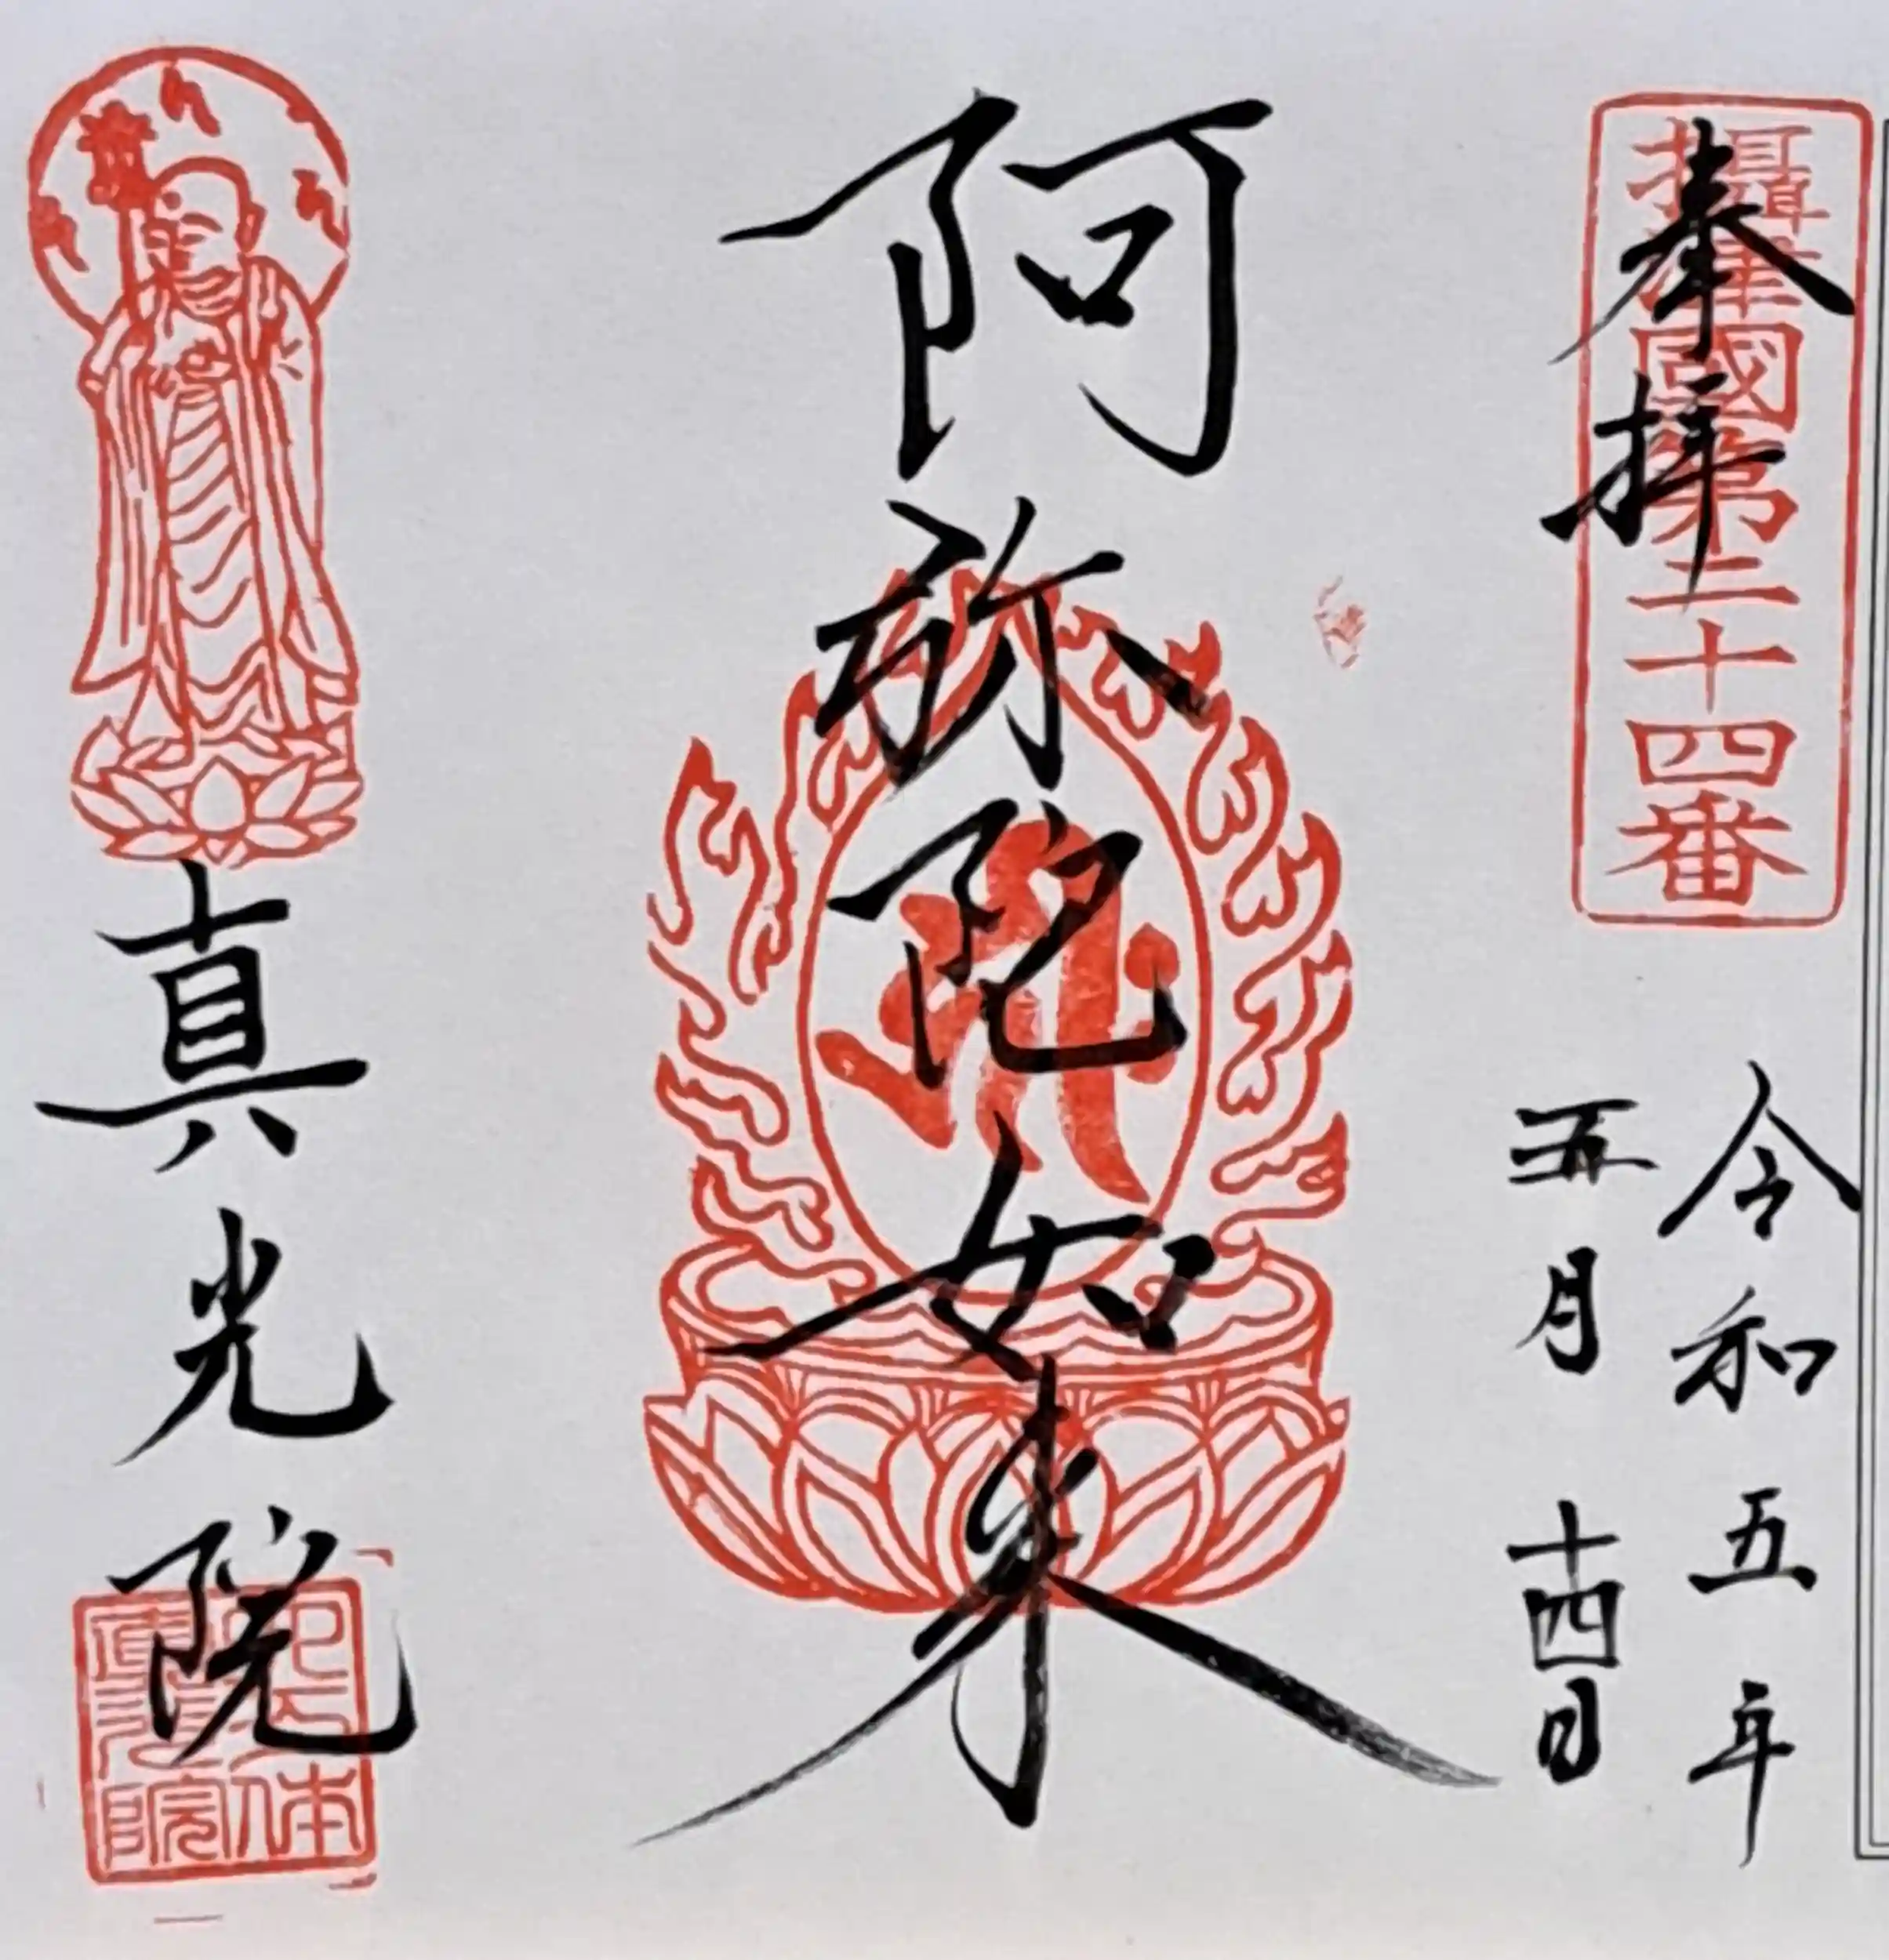 奉拝
攝津國第二十四番
令和五年
五月十四日
阿弥陀如来
真光院